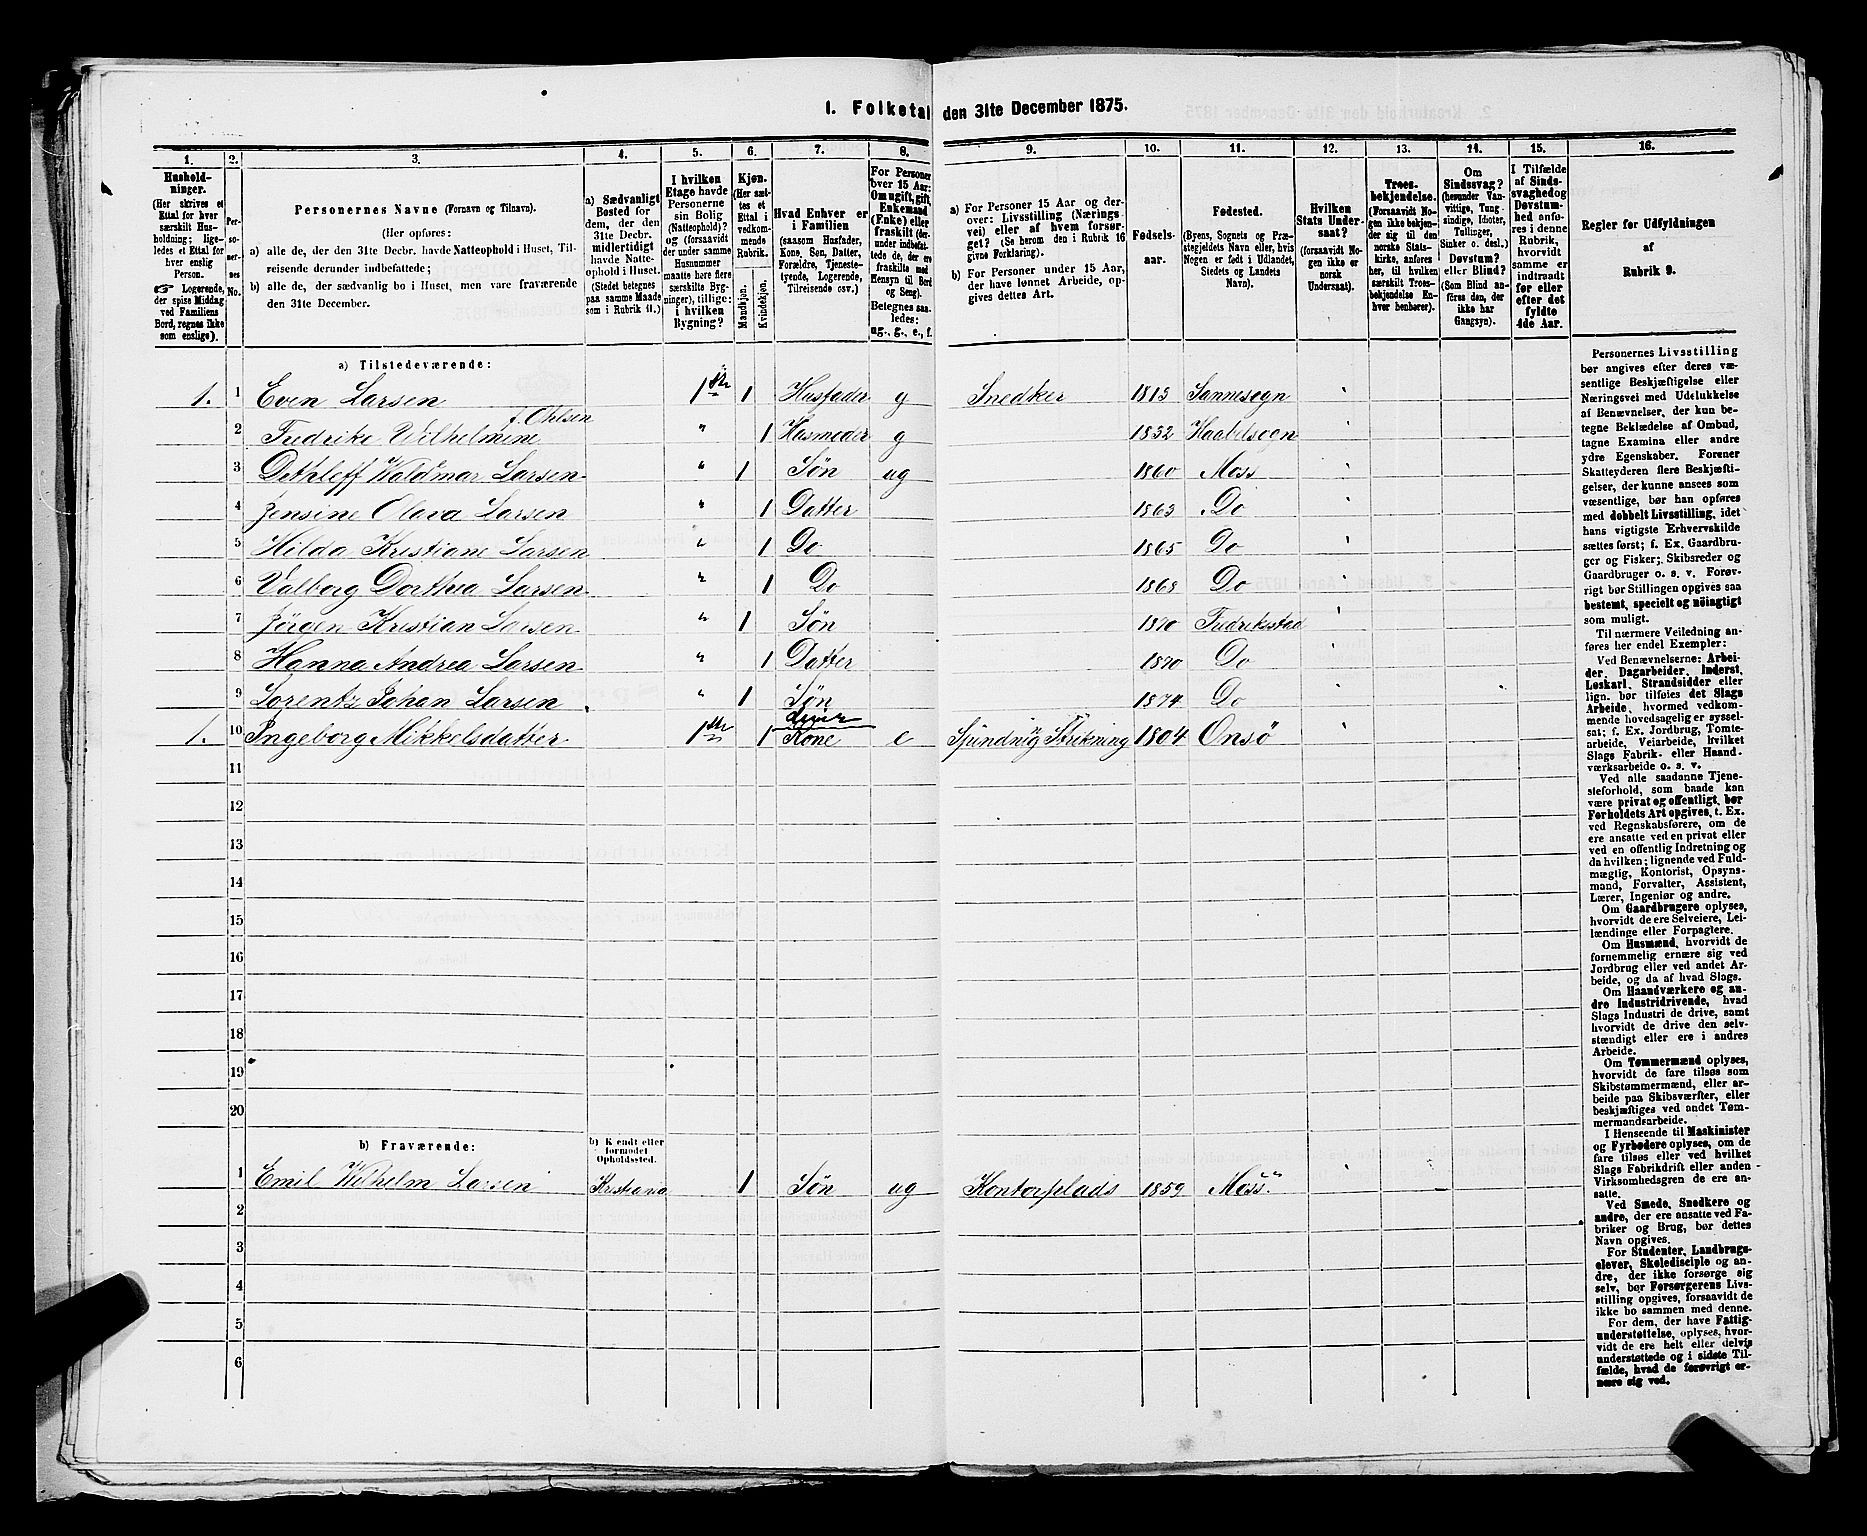 1. Folketal den 31te December 1875.
1.
Hushold-
ninger.
(Her skrives et
Ettal for hver
særskilt Hus-
holdning; lige-
ledes et Ettal for
hver enslig
Person.
☞ Logerende,
der spise Middag
ved Familiens
Bord, regnes ikke
som enslige).
2.
Per-
so-
ner-
nes
No.
3.
Personernes Navne (Fornavn og Tilnavn).
(Her opføres:
a) alle de, der den 31te Decbr. havde Natteophold i Huset, Til-
reisende derunder indbefattede;
b) alle de, der sædvanlig bo i Huset, men vare fraværende
den 31te December.
4.
a) Sædvanligt
Bosted for
dem, der den
31te Decbr.
midlertidigt
havde Natte-
ophold i Huset.
(Stedet betegnes
paa samme Maade
som i Rubrik 11.)
5.
I hvilken
Etage havde
Personerne
sin Bolig
(Natteophold)?
og (forsaavidt
der under samme
Husnummer
maatte høre flere
særskilte Byg-
ninger), tillige:
i hvilken
Bygning?
6.
Kjøn.
(Her sæt-
tes et
Ettal i
vedkom-
mende
Rubrik.
Mandkjøn.
Kvindekjøn.
7.
Hvad Enhver er
i Familien
(saasom Husfader,
Kone, Søn, Datter,
Forældre, Tjeneste-
tyende, Logerende,
Tilreisende osv.)
8.
For Personer
over 15 Aar:
Om ugift, gift,
Enkemand
(Enke) eller
fraskilt (der-
under indbefat-
tede de, der ere
fraskilte med
Hensyn til Bord
og Seng).
Betegnes saa-
ledes:
ug., g., e., f.
9.
a) For Personer 15 Aar og der-
over: Livsstilling (Nærings-
vei) eller af hvem forsør-
get? (Se herom den i Rubrik 16
givne Forklaring).
b) For Personer under 15 Aar,
der have lønnet Arbeide, op-
gives dettes Art.
10.
Fødsels-
aar.
11.
Fødested.
(Byens, Sognets og Præ-
stegjeldets Navn eller, hvis
Nogen er født i Udlandet,
Stedets og Landets
Navn).
12.
Hvilken
Stats Under-
saat?
(forsaavidt No-
gen ikke er
norsk
Undersaat).
13.
Troes-
bekjendelse.
(Forsaavidt No-
gen ikke bekjen-
der sig til den
norske Stats-
kirke, anføres
her, til hvilken
særskilt Troes-
bekjendelse En-
hver henhører).
14.
Om
Sindssvag?
(herunder Van-
vittige, Tung-
sindige, Idioter,
Tullinger,
Sinker o. desl.)
Døvstum?
eller Blind?
(Som Blind an-
føres den, der
ikke har
Gangsyn).
15.
I Tilfælde
af Sinds-
svaghed og
Døvstum-
hed anfø-
res i denne
Rubrik,
hvorvidt
samme er
indtraadt
før eller
efter det
fyldte
4de Aar.
16.
Regler for Udfyldningen
af
Rubrik 9.
a) Tilstedeværende:
1. 1 Even Larsen 1ste 1 Husfader g Snedker 1813 Sannesogn
f. Ohlsen
2 Fredrike Wilhelmine " 1 Husmoder g 1832 Haabelsogn
3 Dethleff Waldmar Larsen " 1 Søn ug 1860 Moss
4 Jensine Olava Larsen " 1 Datter 1863 Do
5 Hilda Kristiane Larsen " 1 Do 1865 Do
6 Valborg Dorthea Larsen " 1 Do 1868 Do
7 Jörgen Kristian Larsen " 1 Søn 1870 Fredriksstad
8 Hanna Andrea Larsen " 1 Datter 1870 Do
9 Lorentz Johan Larsen " 1 Søn 1874 Do
1. 10 Ingeborg Mikkelsdatter 1ste 1 Kone e Spinding Strikning 1804 Onsö
11
12
13
14
15
16
17
18
19
20
b) Fraværende:
b) Kendt eller
formodet
Opholdssted.
1 Emil Wilhelm Larsen Kristiana 1 Søn ug Kontorplads 1859 Moss
2
3
4
5
6
Personernes Livsstilling
bør angives efter deres væ-
sentlige Beskjæftigelse eller
Næringsvei med Udelukkelse
af Benævnelser, der kun be-
tegne Beklædelse af Ombud,
tagne Examina eller andre
ydre Egenskaber. Forener
Skatteyderen flere Beskjæfti-
gelser, der kunne ansees som
væsentlige, bør han opføres
med dobbelt Livsstilling, idet
hans vigtigste Erhvervskilde
sættes først; f. Ex. Gaardbru-
ger og Fisker; Skibsreder og
Gaardbruger o. s. v. Forøv-
rigt bør Stillingen opgives saa
bestemt, specielt og nöiagtigt
som muligt.
Til nærmere Veiledning an-
føres her endel Exempler:
Ved Benævnelserne: Arbei-
der, Dagarbeider, Inderst,
Løskarl, Strandsidder eller
lign. bør tilføies det Slags
Arbeide, hvormed vedkom-
mende hovedsagelig er syssel-
sat; f. Ex. Jordbrug, Tomte-
arbeide, Veiarbeide, hvilket
Slags Fabrik- eller Haand-
værksarbeide o. s. v.
Ved alle saadanne Tjene-
steforhold, som baade kan
være privat og offentligt, bør
Forholdets Art opgives, t. Ex.
ved Regnskabsførere, om de
ere ansatte ved en privat eller
ved en offentlig Indretning og
da hvilken; lignende ved Fuld-
mægtig, Kontorist, Opsyns-
mand, Forvalter, Assistent,
Lærer, Ingeniør og andre.
Om Gaardbrugere oplyses,
hvorvidt de ere Selveiere, Lei-
lændinge eller Forpagtere.
Om Husmænd, hvorvidt de
fornemmelig ernære sig ved
Jordbrug eller ved andet Ar-
beide, og da af hvad Slags.
Om Haandværkere og an-
dre Industridrivende, hvad
Slags Industri de drive, samt
hvorvidt de drive den selv-
stændigt eller ere i andres
Arbeide.
Om Tømmermænd oplyses,
hvorvidt de fare tilsøs som
Skibstømmermænd, eller ar-
beide paa Skibsværfter, eller
beskjæftiges ved andet Tøm-
mermandsarbeide.
I Henseende til Maskinister
og Fyrbødere oplyses, om de
fare tilsøs eller ved hvilket
Slags Fabrikdrift eller anden
Virksomhedsgren de ere an-
satte.
Ved Smede, Snedkere og
andre, der ere ansatte ved Fa-
briker og Brug, bør dettes
Navn opgives.
For Studenter, Landbrugs-
elever, Skoledisciple og an-
dre, der ikke forsørge sig
selv, bør Forsørgerens Livs-
stilling opgives, forsaavidt de
ikke bo sammen med denne.
For dem, der have Fattig-
understøttelse, oplyses, hvor-
vidt de ere helt eller delvis
understøttede og i sidste Til-
fælde, hvad de forøvrigt er-
nære sig ved.